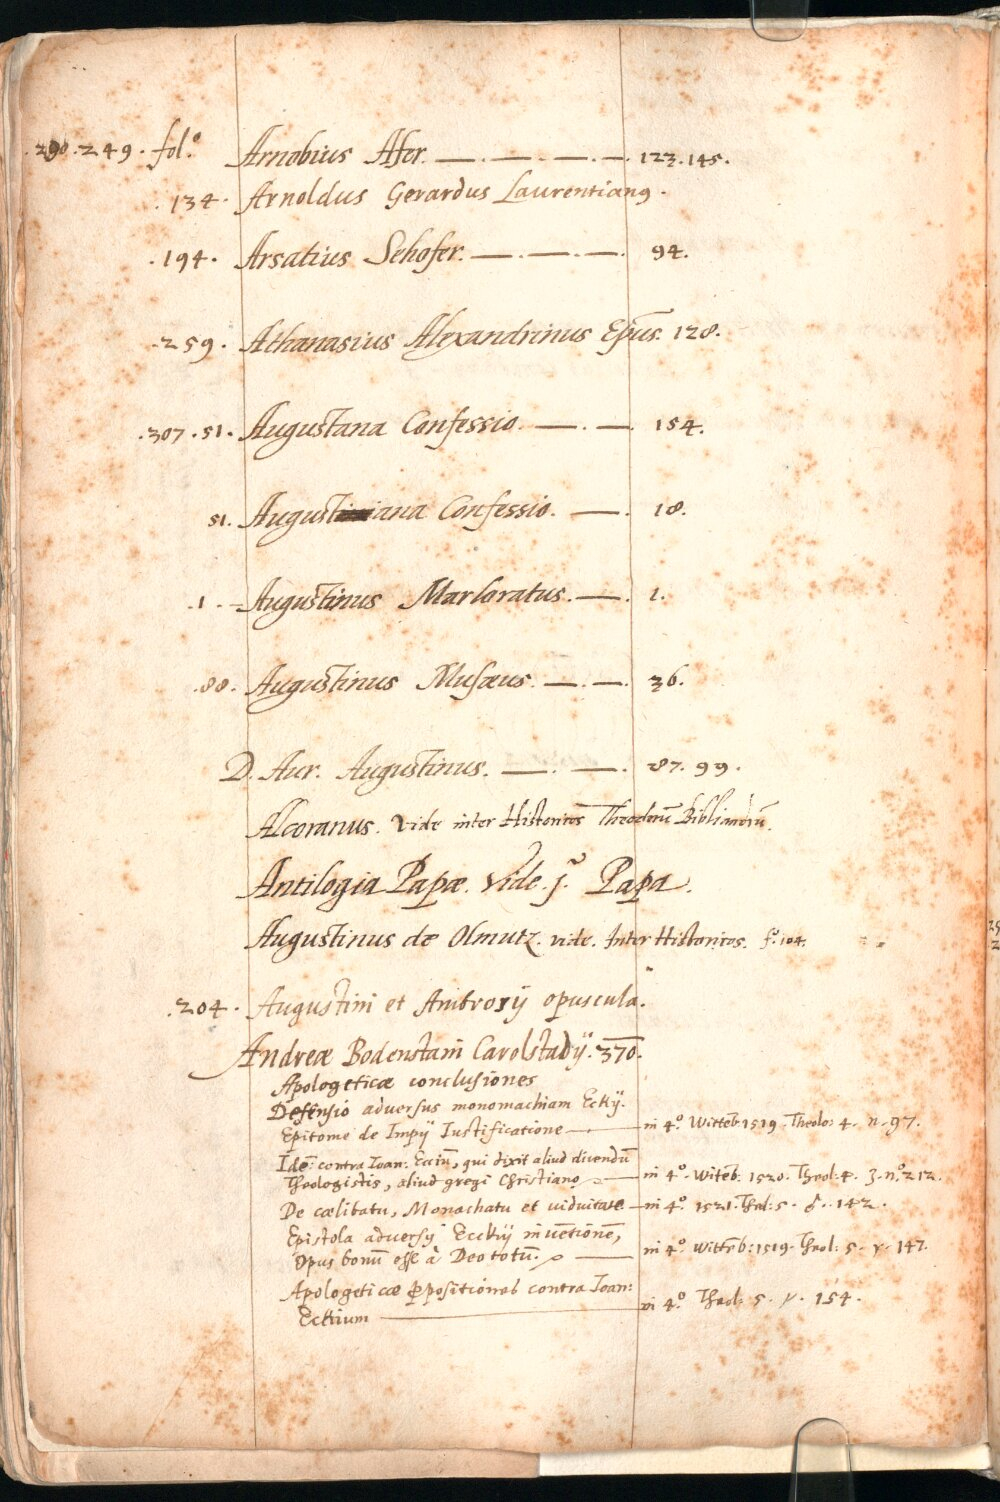 .290.249. fol.º Arnobius Afer. —.—.—.—. 123.145.
.134. Arnoldus Gerardus Laurentianꝰ.
.194. Arsatius Sehofer. —.—.—. 94.
.259. Athanasius Alexandrinus Ep̄us. 128.
.307.51. Augustana Confessio. —.—. 154.
51. Augustiana Confessio. —. 18.
.1. Augustinus Marloratus. —. 1.
.88. Augustinus Musæus. —.—. 36.
D. Aur. Augustinus. —.—. 87. 99.
Alcoranus. Vide inter Historicos Theodorū Bibliandrū.
Antilogia Papæ. Vide. j. Papa.
Augustinus de Olmutz. vide. Inter Historicos. fº.104.
.204. Augustini et Ambrosij opuscula.
Andreæ Bodenstain Carolstadij. 370.
Apologeticæ conclusiones
Defensio adversus monomachiam Eckij.
Epitome de Impij Iustificatione — in 4º. Witteb. 1519. Theolo: 4. n. 97.
Idē: contra Ioan: Ecciū, qui dixit aliud dicendū
Theologistis, aliud gregi Christiano — in 4º. Witēb: 1520. Theol: 4. Z. nº. 212.
De cælibatu, Monachatu et viduitate — in 4º. 1521. Thol: 5. 142.
Epistola adversꝰ Ecckij invētionē,
Opus bonū esse à Deo totū. — in 4º. Wittēb: 1519. Theol: 5. r. 147.
Apologeticæ ꝓpositiones contra Ioan:
Eckium — in 4º. Theol: 5. 154.